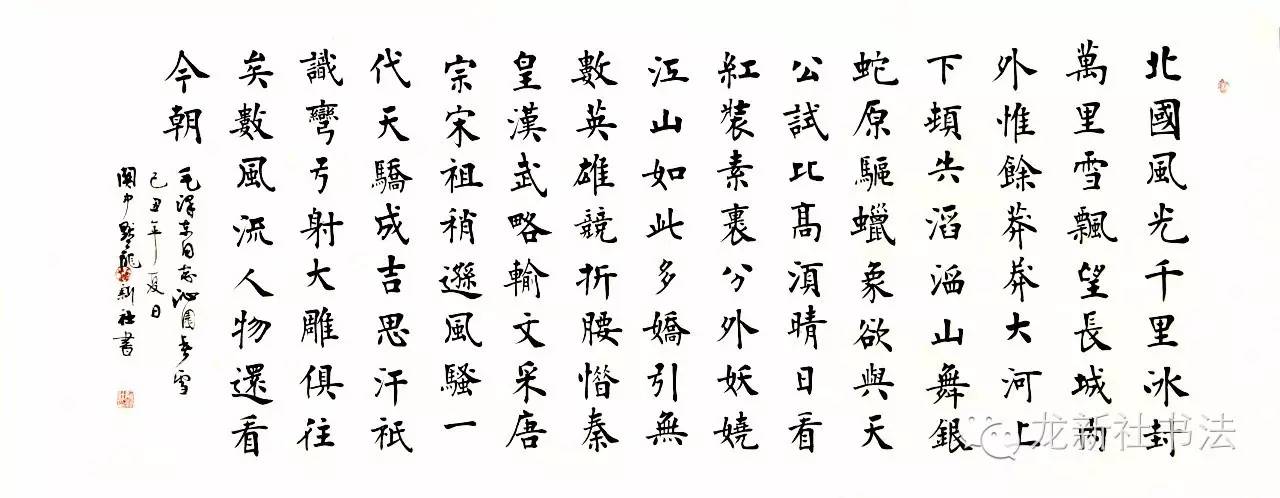 北國風光千里冰封
萬里雪飄望長城內
外惟餘莽莽大河上
下頓失滔滔山舞銀
蛇原驅蠟象欲與天
公試比高須晴日看
紅裝素裹分外妖嬈
江山如此多嬌引無
數英雄競折腰惜秦
皇漢武略輸文采唐
宗宋祖稍遜風騷一
代天驕成吉思汗祇
識彎弓射大雕俱往
矣數風流人物還看
今朝
毛澤東同志沁園春雪
己丑年夏日
関中龍新社書
龙新社书法